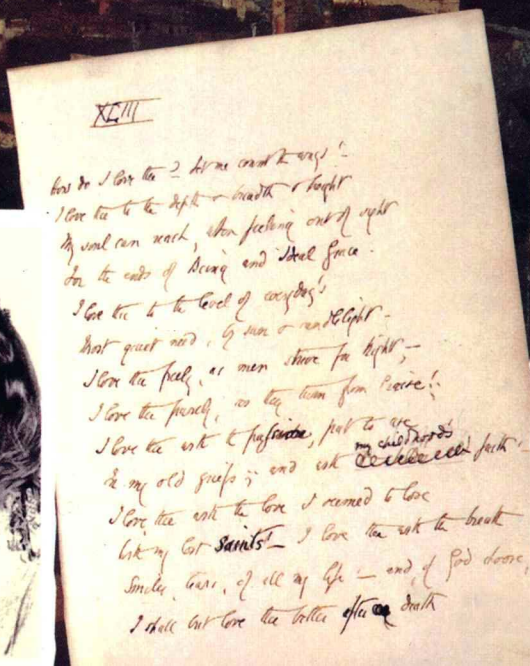 XLIII
How do I love thee? Let me count the ways!—
I love thee to the depth & breadth & height
My soul can reach, when feeling out of sight
For the ends of Being and Ideal Grace.
I love thee to the level of everyday's
Most quiet need, by sun & candlelight—
I love thee freely, as men strive for Right,—
I love thee purely, as they turn from Praise!;
I love thee with the passion, put to use
In my old griefs,; and with my childhood's faith!
I love thee with the love I seemed to lose
With my lost Saints!— I love thee with the breath
Smiles, tears, of all my life!— and, if God choose,
I shall but love thee better after death